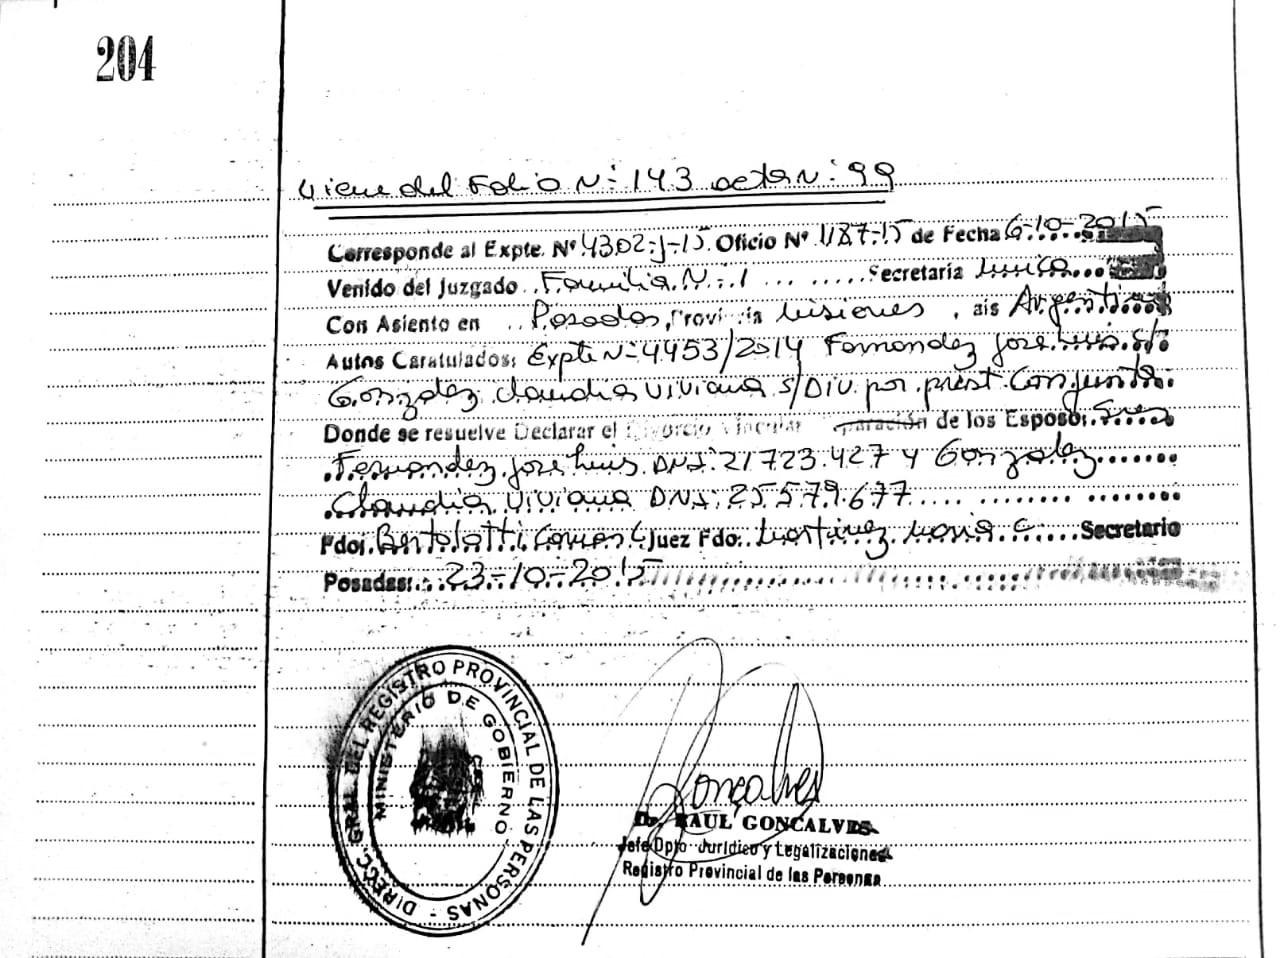 204
Viene del Folio Nº 143 acta Nº 99
Corresponde al Expte. Nº 4302-J-15 Oficio Nº 1187-15 de Fecha 6-10-2015
Venido del Juzgado Familia Nº 1 Secretaría única
Con Asiento en Posadas, Provincia Misiones, ais Argentina
Autos Caratulados: Expte Nº 4453/2014 Fernandez Jose Luis s/
Gonzalez Claudia Viviana s/ DIV. por prest. Conjunta.
Donde se resuelve Declarar el Divorcio Vincular paración de los Esposo: Sres
Fernandez Jose Luis DNI: 21.723.427 y Gonzalez
Claudia Viviana DNI: 25.579.677
Fdo: Bertolotti Juez Fdo: Martinez Maria C. Secretario
Posadas: 23-10-2015
DIRECC. GRAL. DEL REGISTRO PROVINCIAL DE LAS PERSONAS -
MINISTERIO DE GOBIERNO
Gonçalves
Dr. RAUL GONCALVES
Jefe Dpto Jurídico y Legalizaciones
Registro Provincial de las Personas